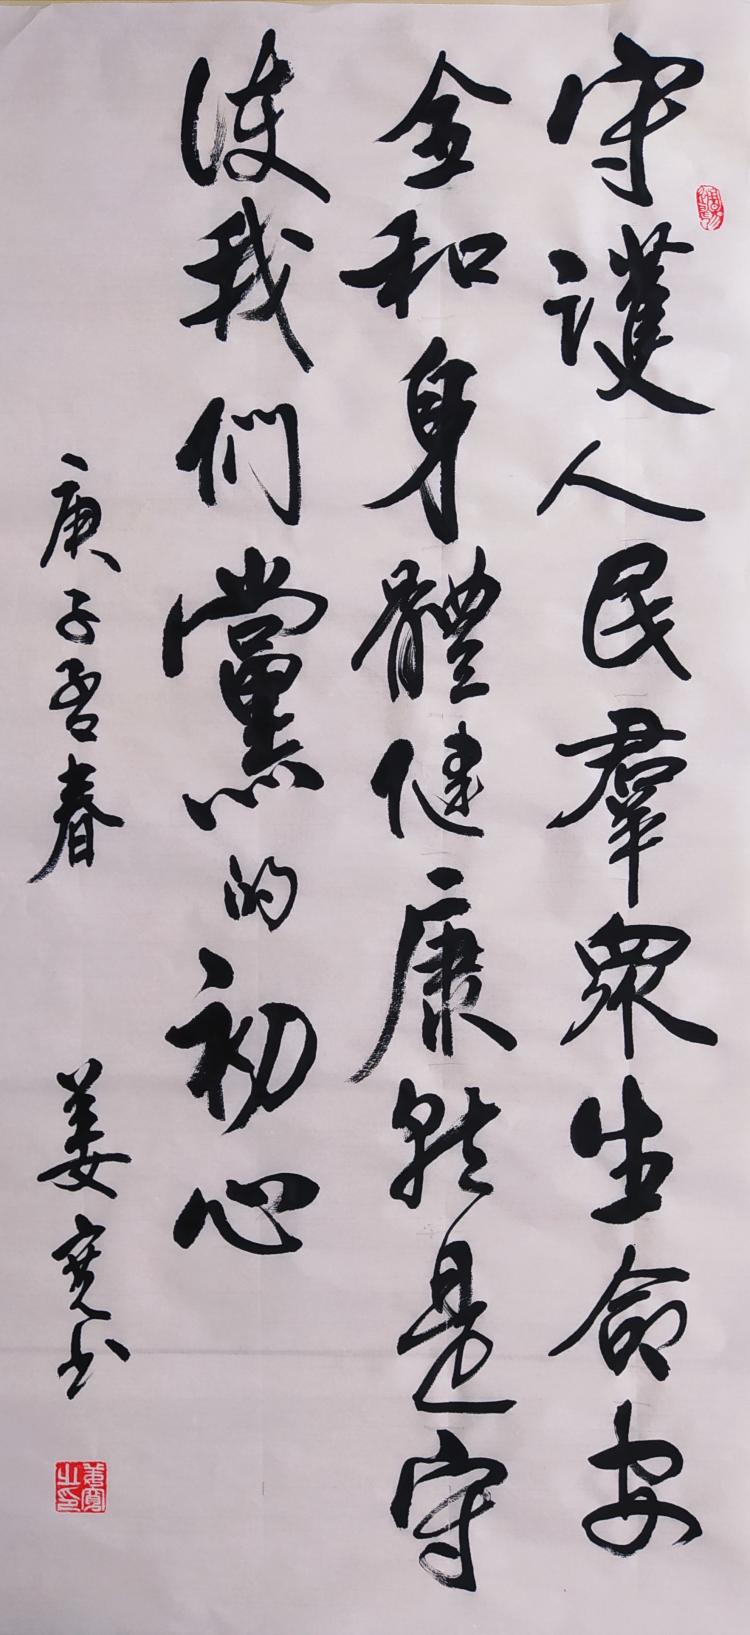 守護人民羣眾生命安
全和身體健康就是守
護我們黨的初心
庚子春
姜寬書
姜寬之印